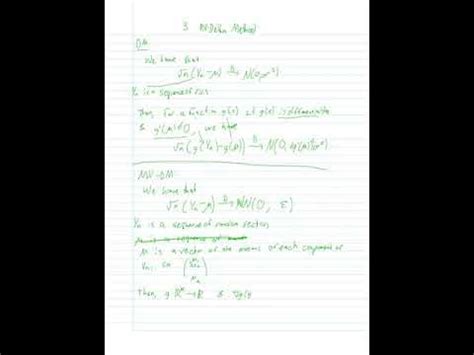 3 MV Delta Method
DM
We have that
√n (Yn − μ) →D N(0, σ²)
Yn is a sequence of rvs
Then, for a function g(x) st g(x) is differentiable
& g'(μ) ≠ 0, we have
√n (g(Yn) − g(μ)) →D N(0, (g'(μ))²σ²)
MV-DM
We have that
√n (Yn − μ) →D MVN(0, Σ)
Yn is a sequence of random vectors
μ is a sequence of
μ is a vector of the means of each component of
Then, g ℝ → ℝ &